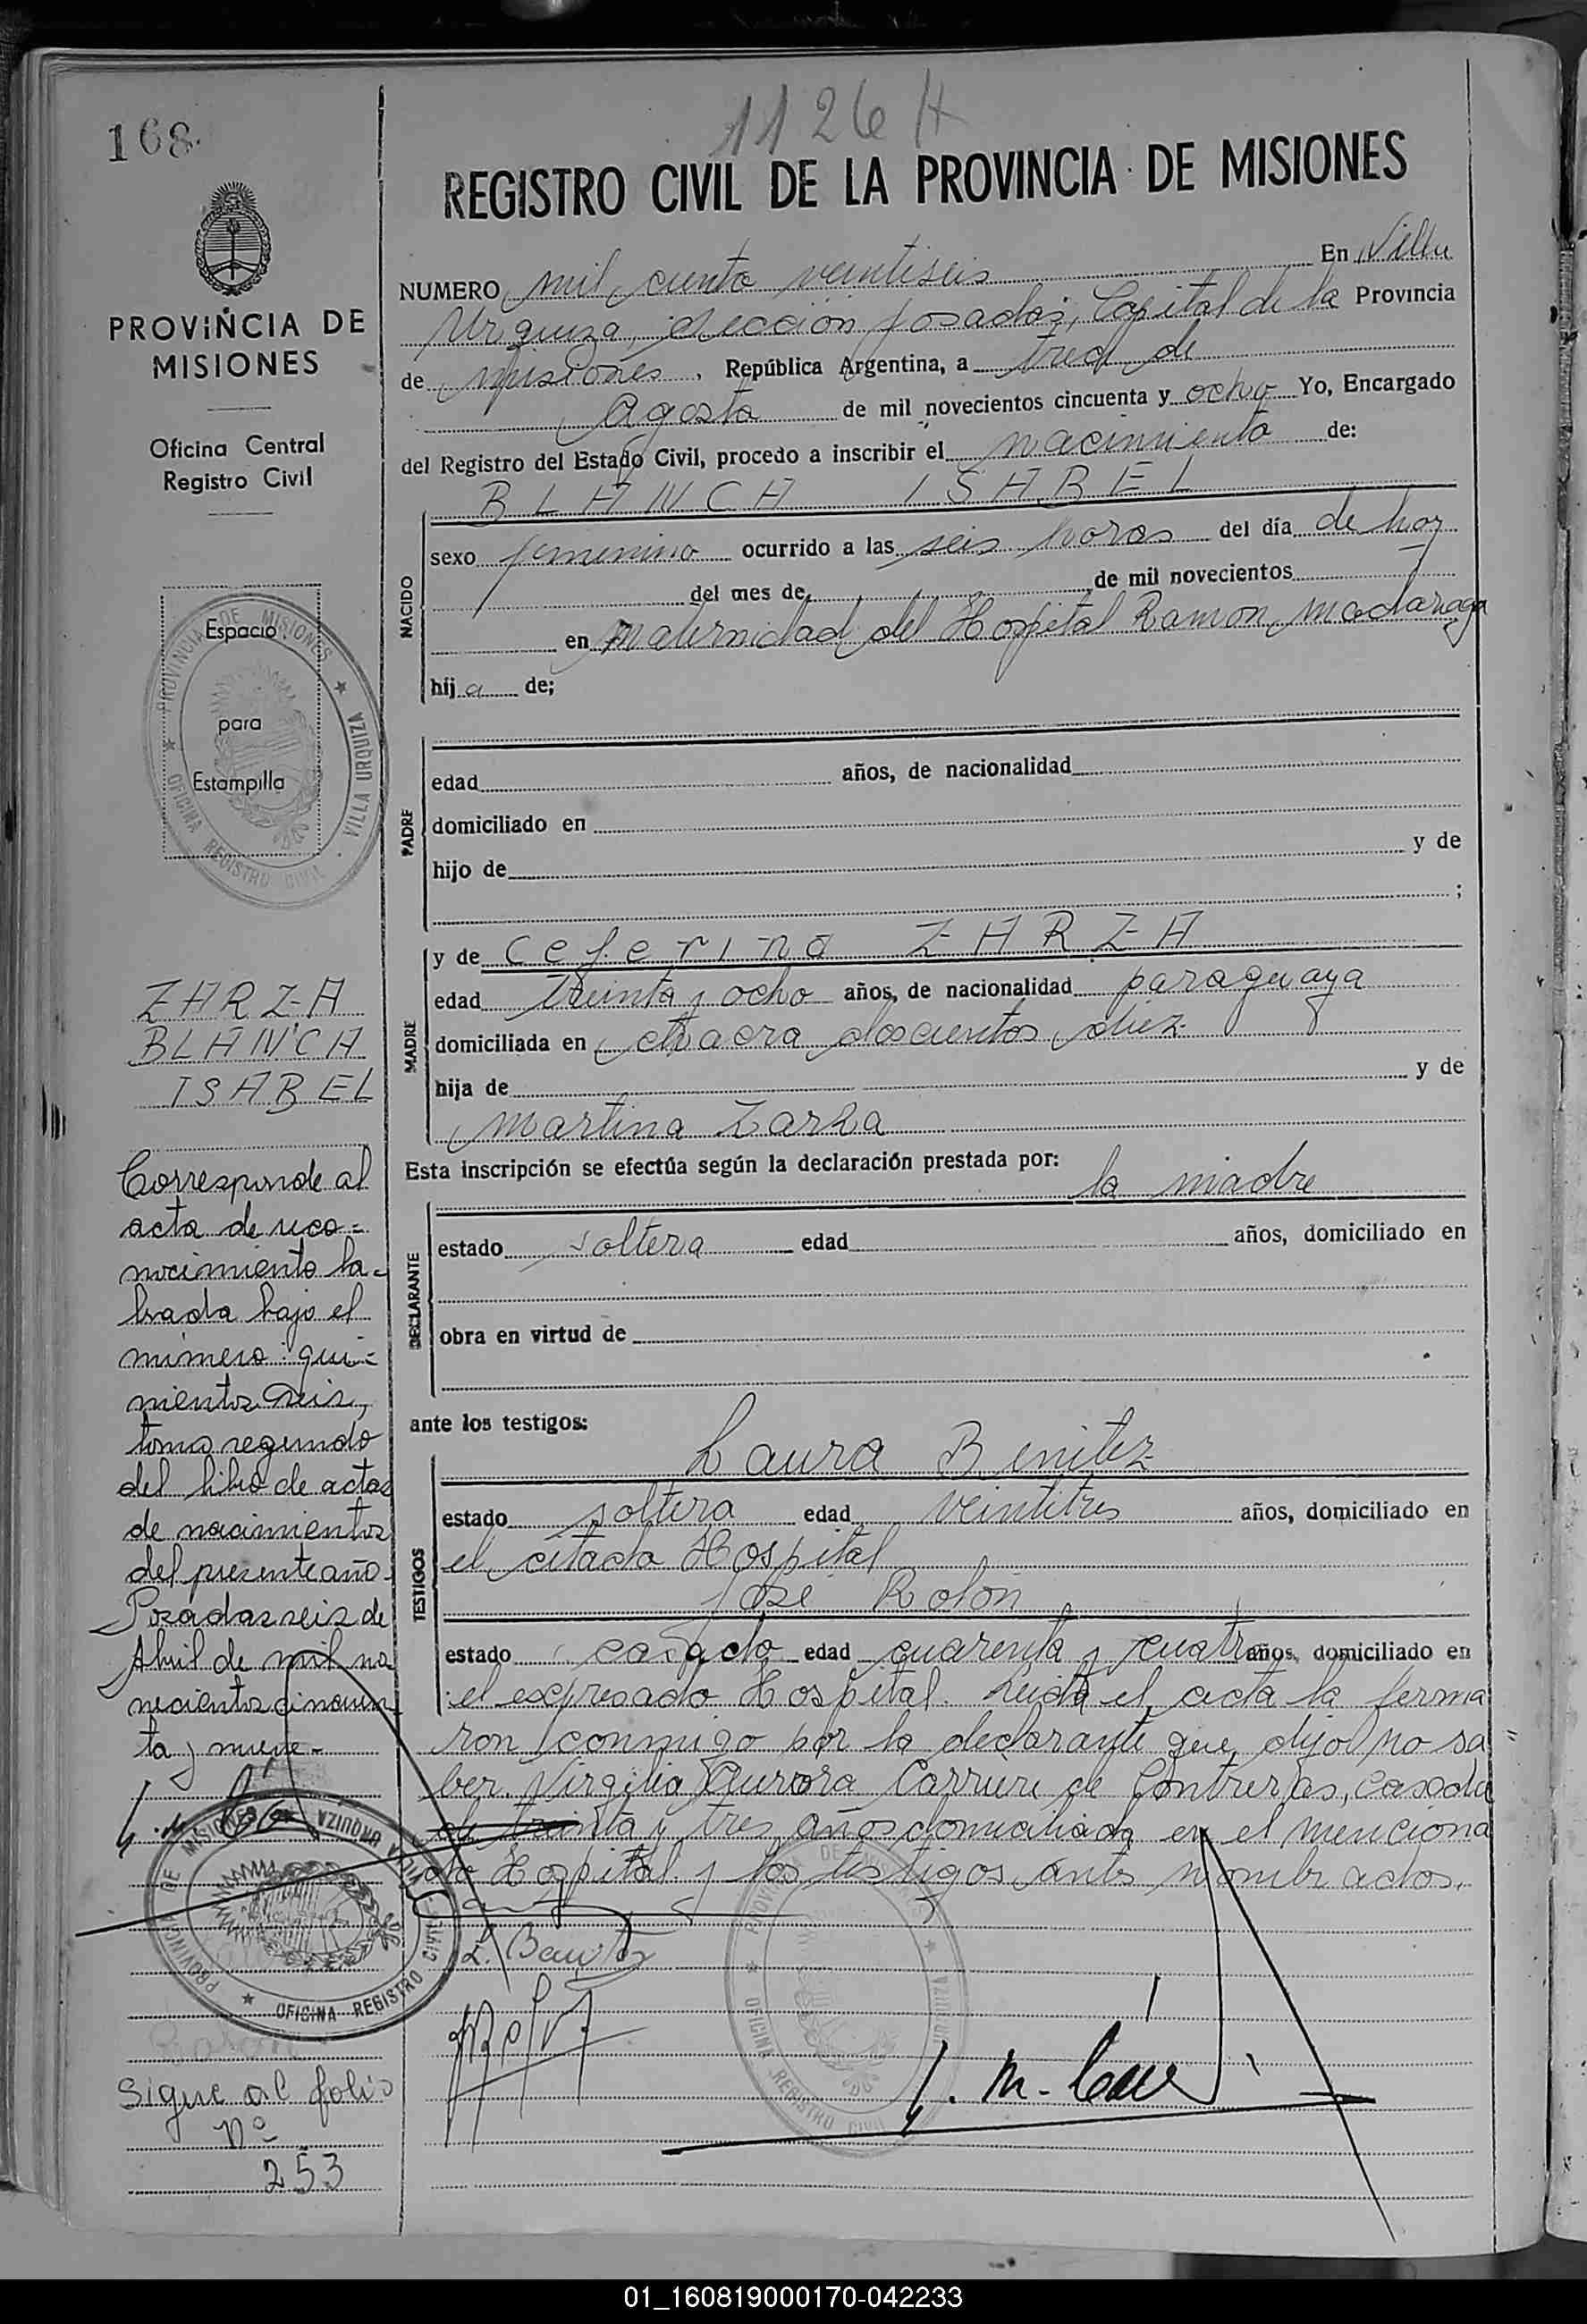 1126 H
168.
REGISTRO CIVIL DE LA PROVINCIA DE MISIONES
PROVINCIA DE
MISIONES
Oficina Central
Registro Civil
NUMERO mil ciento veintiseis En Villa
Urquiza, sección Posadas, Capital de la Provincia
de Misiones, República Argentina, a tres de
Agosto de mil novecientos cincuenta y ocho Yo, Encargado
del Registro del Estado Civil, procedo a inscribir el nacimiento de:
BLANCA ISABEL
NACIDO
sexo femenino ocurrido a las seis horas del día de hoy
del mes de de mil novecientos
en Maternidad del Hospital Ramon Madariaga
hija de;
PADRE
edad años, de nacionalidad
domiciliado en
hijo de y de
;
MADRE
y de Ceferina ZARZA
edad treinta y ocho años, de nacionalidad paraguaya
domiciliada en chacra doscientos diez
hija de y de
Martina Zarza
Esta inscripción se efectúa según la declaración prestada por:
la madre
DECLARANTE
estado soltera edad años, domiciliado en
obra en virtud de
ante los testigos:
Laura Benitez
TESTIGOS
estado soltera edad veintitres años, domiciliado en
el citado Hospital
José Rolón
estado casado edad cuarenta y cuatro años, domiciliado en
el expresado Hospital. Leida el acta la firma
ron conmigo por la declarante que dijo no sa=
ber. Virgilia Aurora Carrure de Contreras, casada
de treinta y tres años domiciliada en el menciona
do Hospital y los testigos ante nombrados.
L. Benitez
Espacio
para
Estampilla
PROVINCIA DE MISIONES
OFICINA REGISTRO CIVIL
VILLA URQUIZA
ZARZA
BLANCA
ISABEL
Corresponde al
acta de reco=
nocimiento la=
brada bajo el
número: qui=
nientos seis,
tomo segundo
del libro de actas
de nacimientos
del presente año.
Posadas seis de
Abril de mil no
vecientos cincuen
ta y nueve.-
PROVINCIA DE MISIONES
VILLA URQUIZA
OFICINA REGISTRO CIVIL
PROVINCIA DE MISIONES
OFICINA REGISTRO CIVIL
VILLA URQUIZA
Sigue al folio
Nº
253
01_160819000170-042233